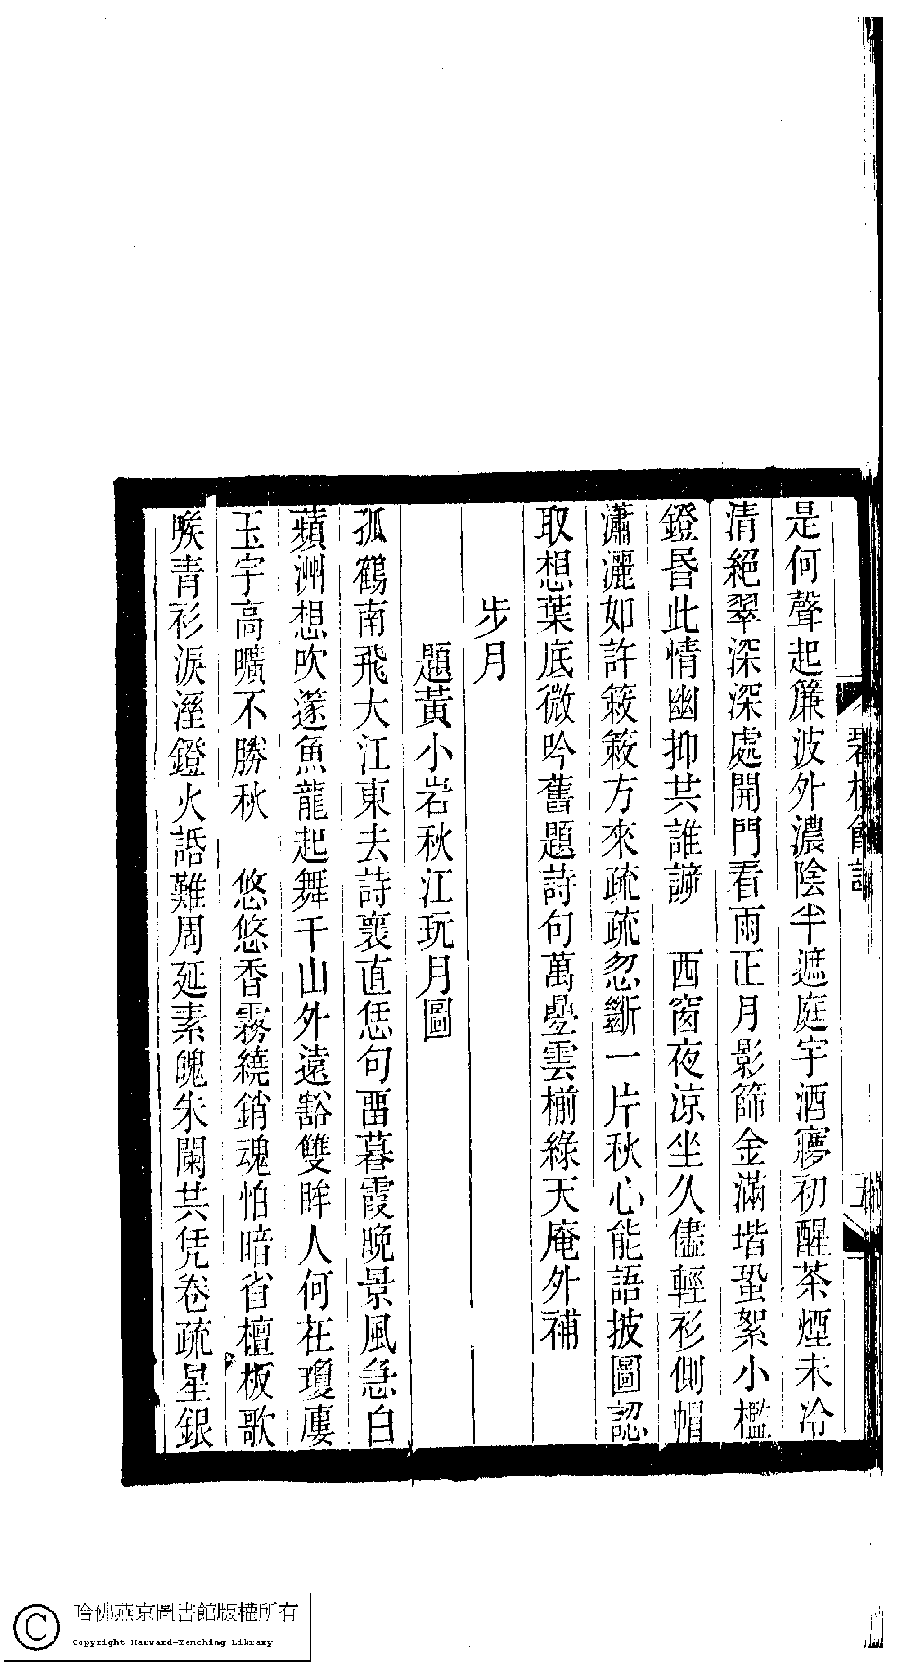 是何聲起簾波外濃陰半遮庭宇酒寱初醒茶煙未冷
清絕翠深深處開門看雨正月影篩金滿堦蛩絮小檻
鐙昏此情幽抑共誰諦　西窗夜涼坐久儘輕衫側帽
瀟灑如許簌簌方來疏疏忽斷一片秋心能語披圖認
取想葉底微吟舊題詩句萬疊雲榭綠天庵外補
步月
題黃小岩秋江玩月圖
孤鶴南飛大江東去詩襄直恁句畱暮霞晚景風急白
蘋洲想吹邃魚龍起舞千山外遠豁雙眸人何在瓊廔
玉宇高曠不勝秋　悠悠香霧繞銷魂怕暗省檀板歌
喉青衫淚溼鐙火話難周延素魄朱闌共凭卷疏星銀
哈佛燕京圖書館版權所有
Copyright Harvard-Yenching Library